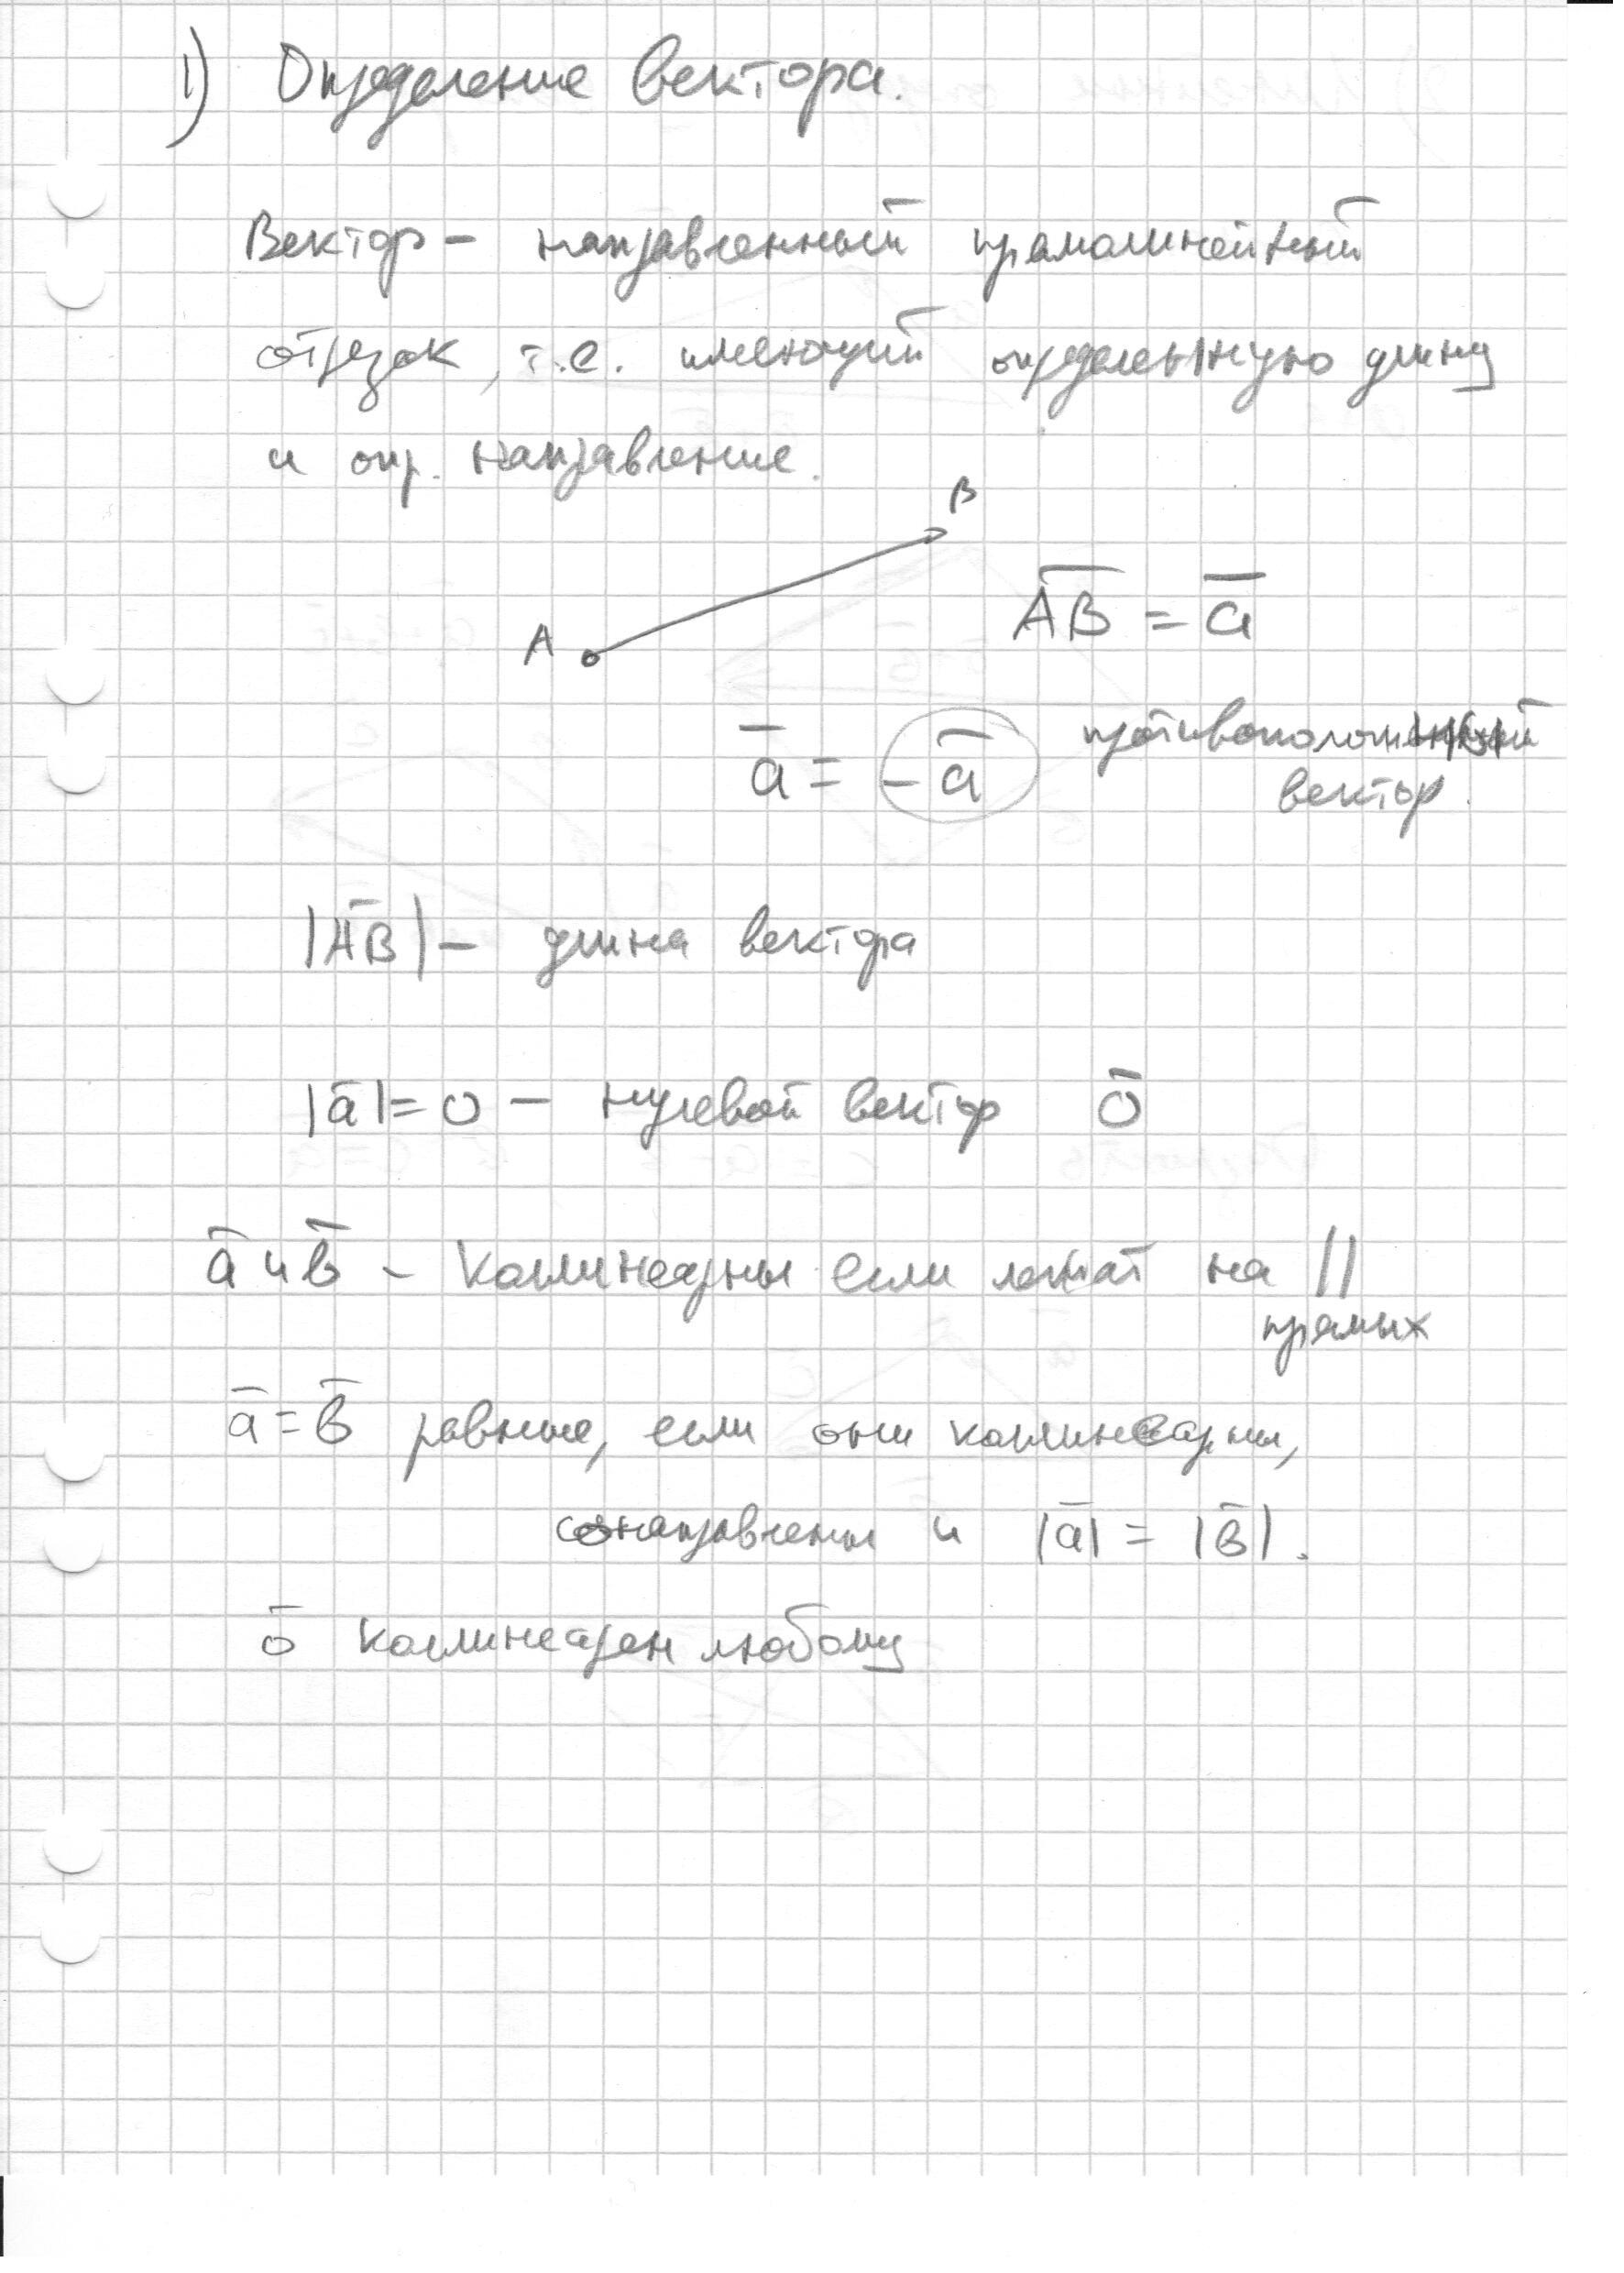 1) Определение вектора.
Вектор – направленный прямолинейный
отрезок, т.е. имеющий определенную длину
и опр. направление.
B
A
A̅B̅ = a̅
a̅ = – a̅ противоположный
вектор.
|A̅B̅| – длина вектора
|a̅| = 0 – нулевой вектор 0̅
a̅ и b̅ – коллинеарны если лежат на ||
прямых
a̅ = b̅ равные, если они коллинеарны,
сонаправлены и |a̅| = |b̅|.
0̅ коллинеарен любому